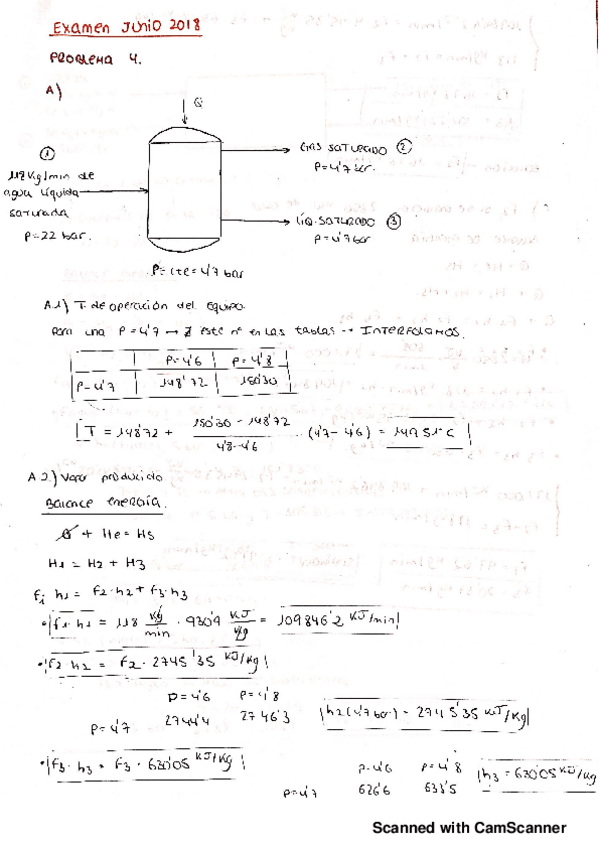 Examen Junio 2018
Problema 4.
A)
Q
①
118 Kg/min de
agua líquida
saturada
P=22 bar.
Gas saturado ②
P=4'7 bar.
Líq. saturado ③
P=4'7 bar
P=cte=4'7 bar
A.1) T de operación del equipo.
Para una P=4'7 → ∄ este nº en las tablas → INTERPOLAMOS.
P=4'6 P=4'8
P=4'7 148'72 150'30
T = 148'72 + (150'30 - 148'72)/(4'8-4'6) · (4'7-4'6) = 149'51ºC
A.2.) Vapor producido
Balance energía.
Q + He = Hs
H1 = H2 + H3
F1 h1 = F2·h2 + F3·h3
• F1·h1 = 118 Kg/min · 930'9 KJ/Kg = 109846'2 KJ/min
• F2·h2 = F2 · 2745'35 KJ/Kg
P=4'6 P=4'8
P=4'7 2744'4 2746'3 h2(4'7bar) = 2745'35 KJ/Kg
• F3·h3 = F3 · 630'05 KJ/Kg
P=4'6 P=4'8
P=4'7 626'6 633'5 h3 = 630'05 KJ/Kg
Scanned with CamScanner